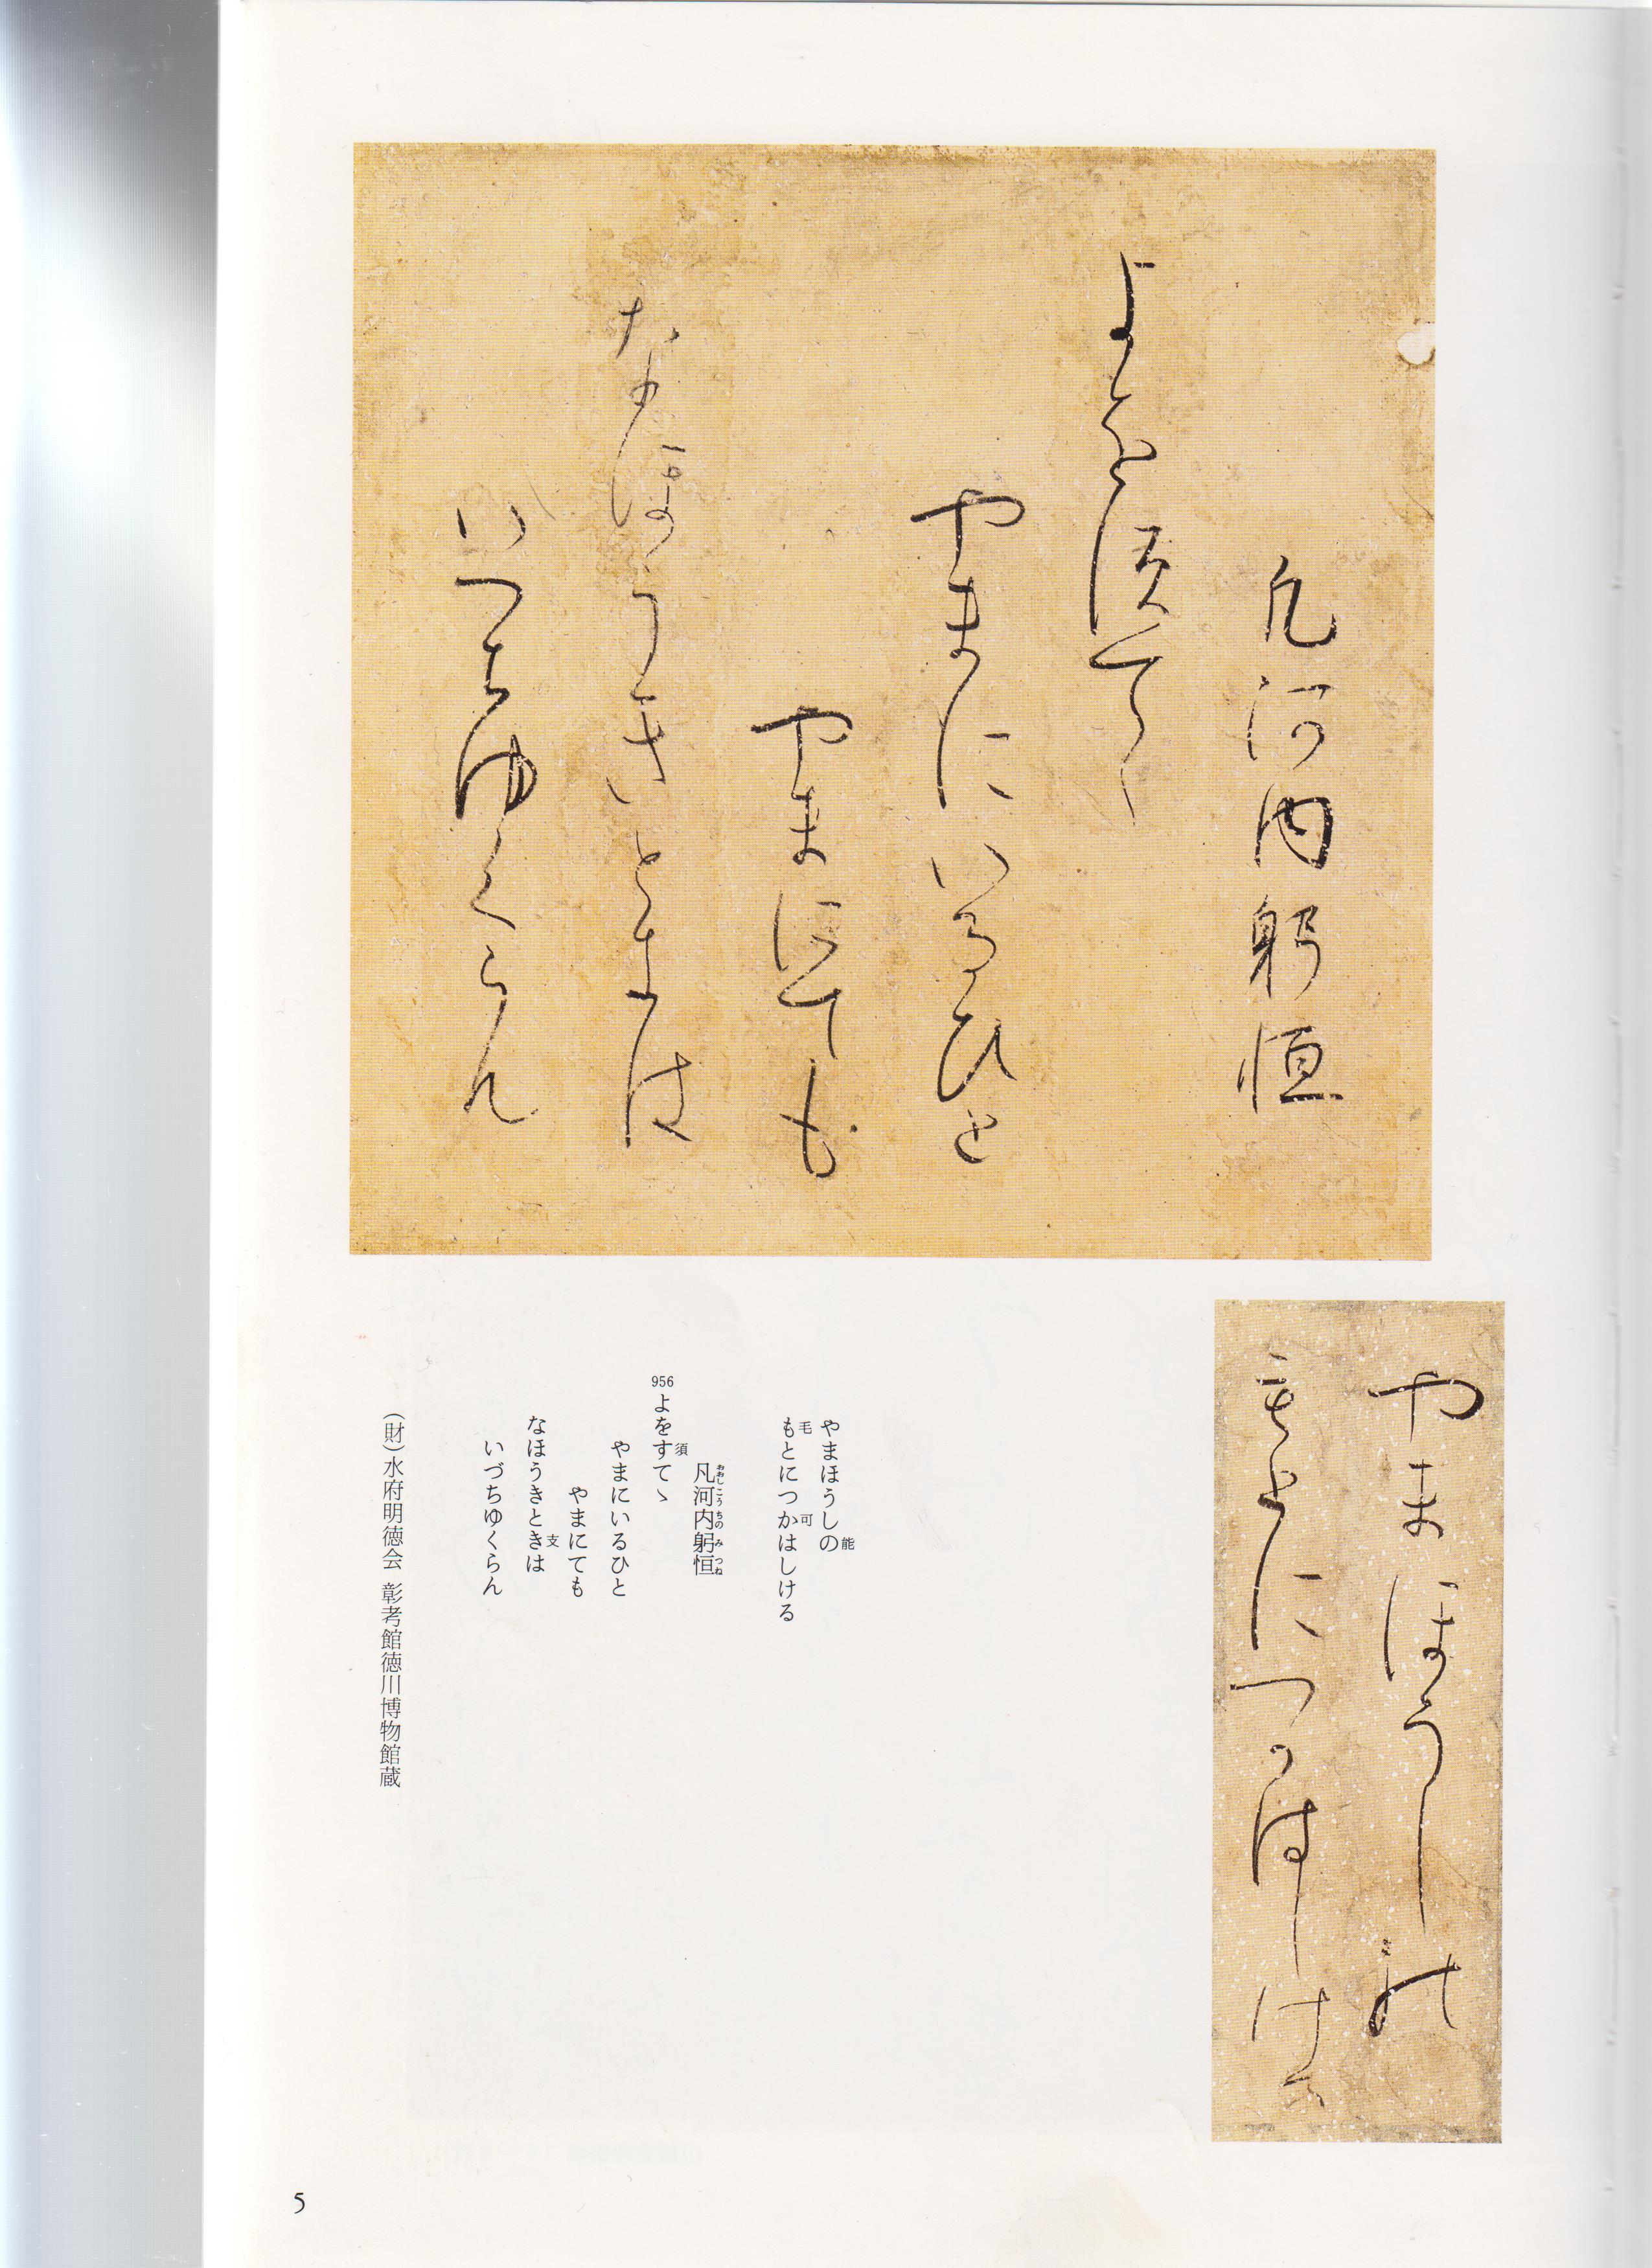 やまほうし能
毛とにつ可はしける
凡河内躬恒
よを須てゝ
やまにいるひと
やまにても
なほうきと支は
いつちゆくらん
やまほうしの
能
もとにつかはしける
毛
可
凡河内躬恒
おおしこうちのみつね
956
よをすてゝ
須
やまにいるひと
やまにても
なほうきときは
支
いづちゆくらん
(財)水府明徳会 彰考館徳川博物館蔵
5